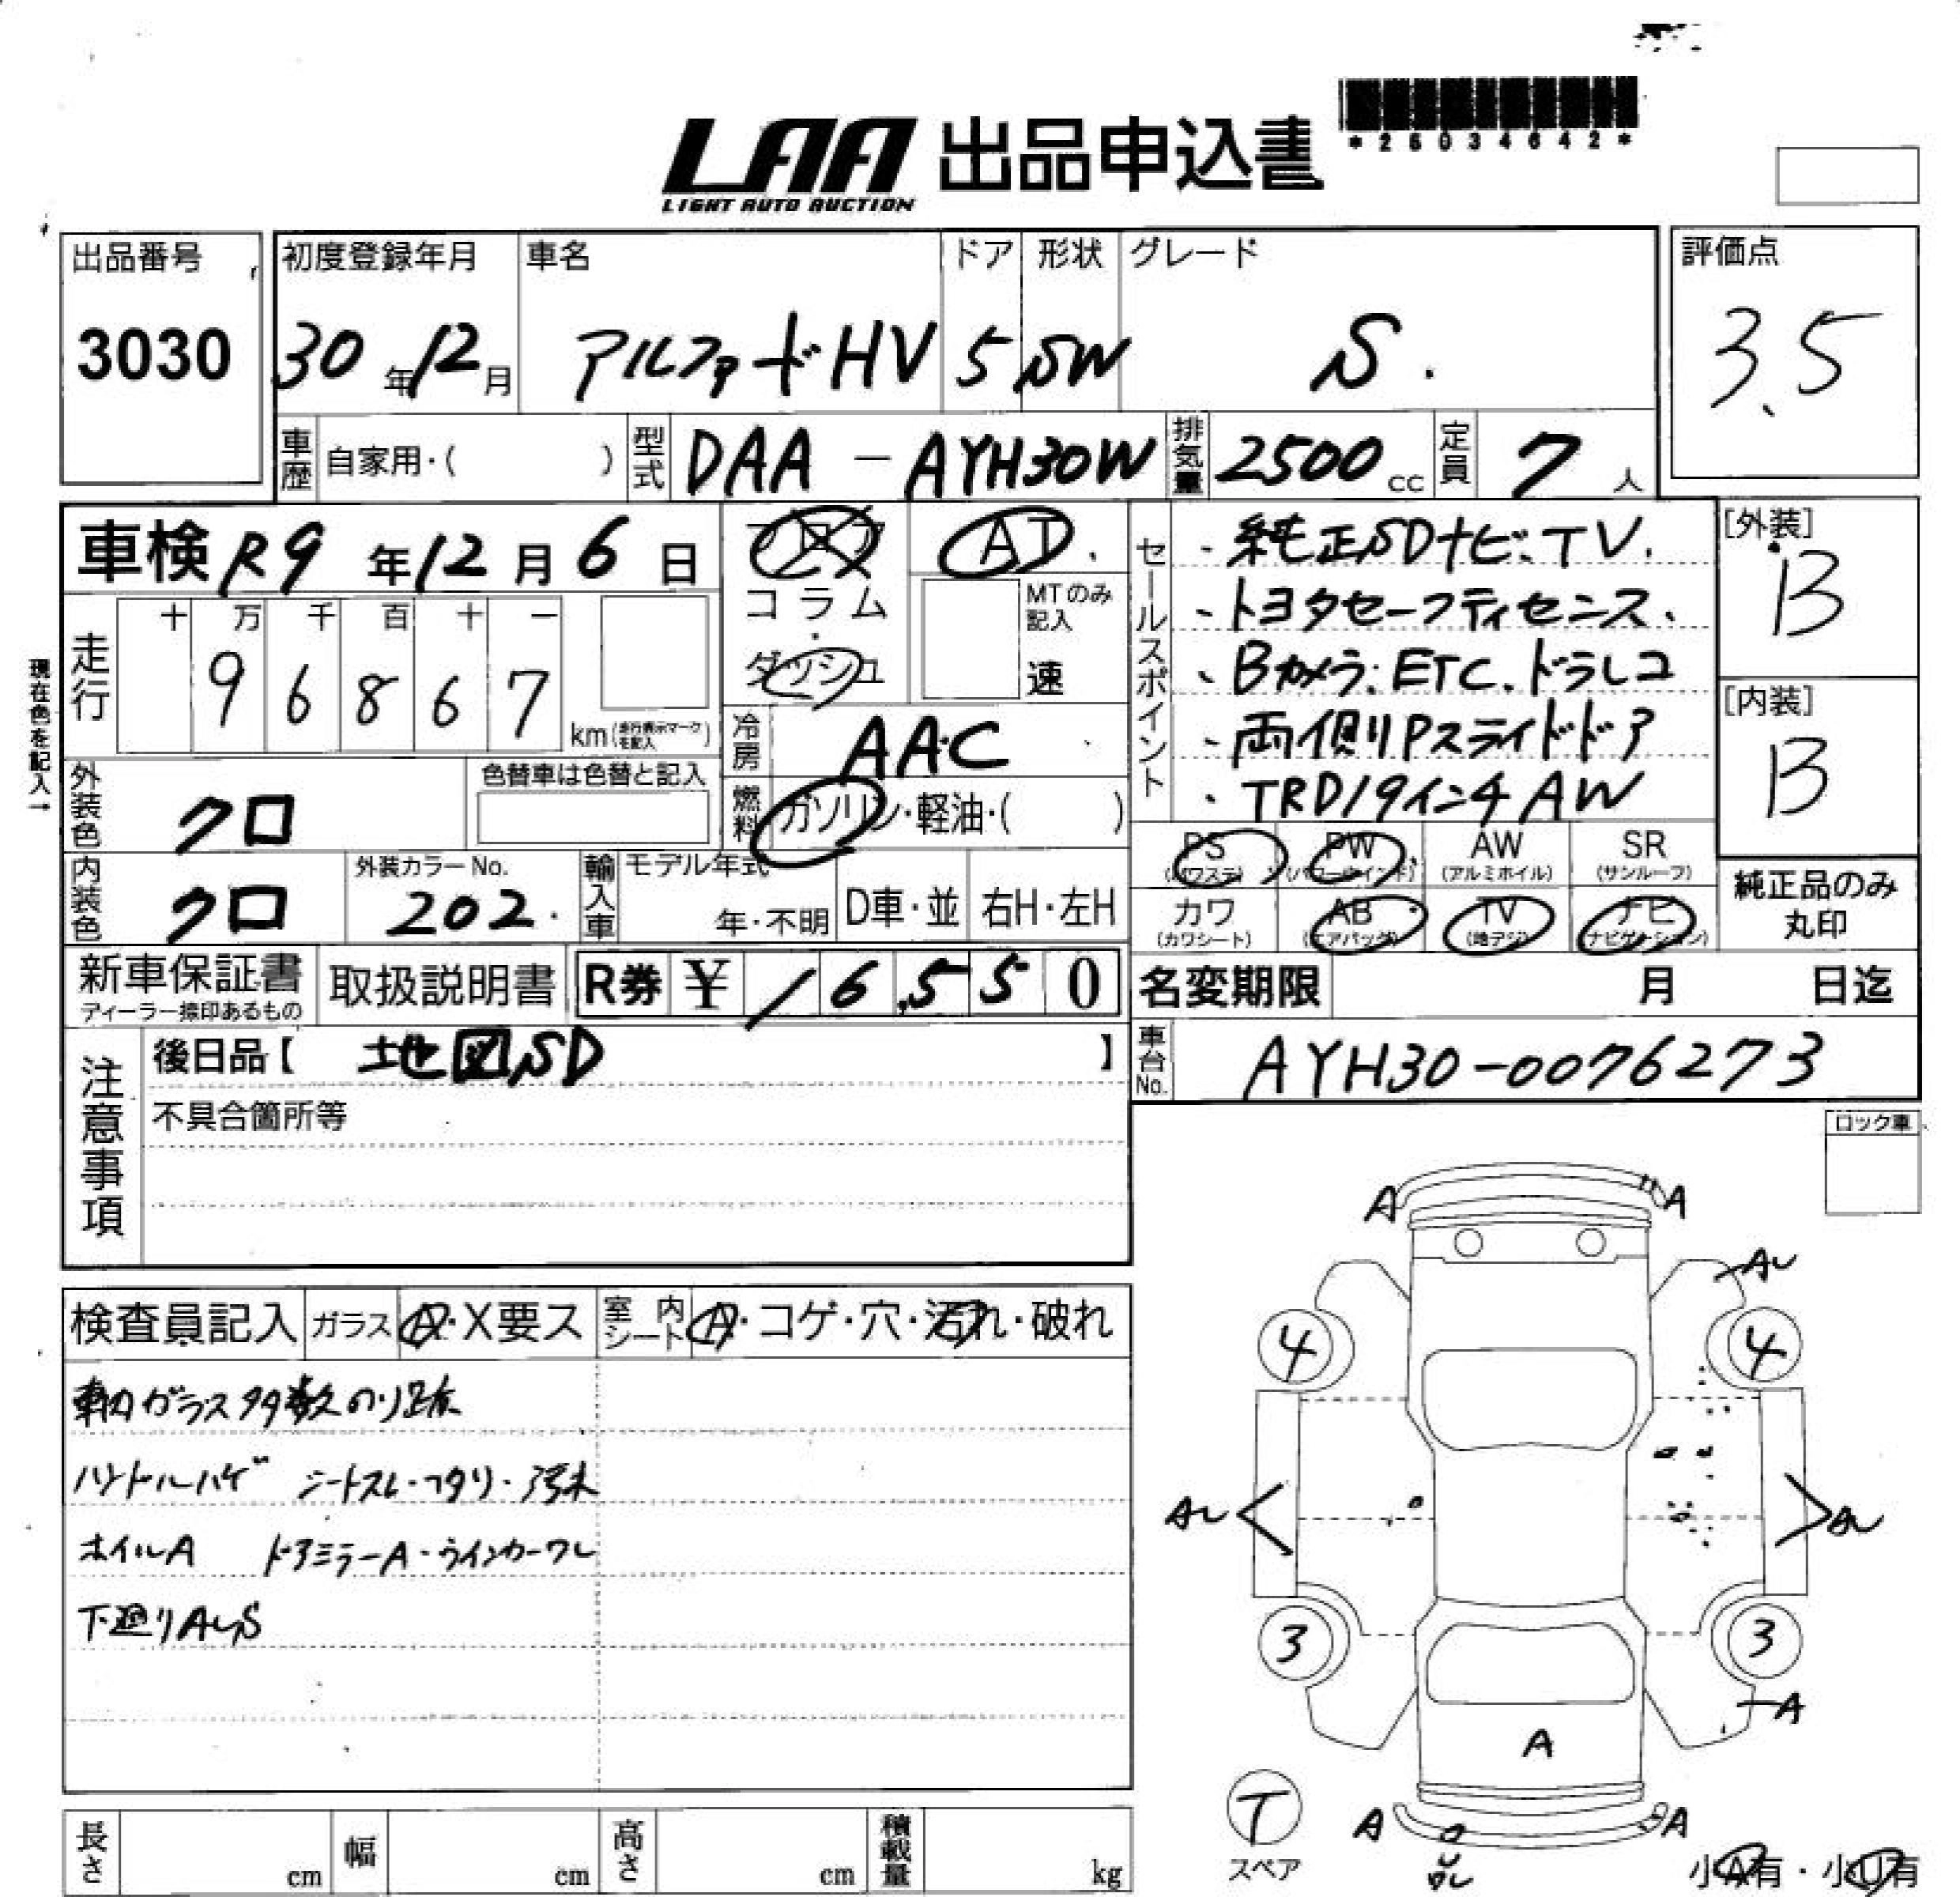 LAA 出品申込書
LIGHT AUTO AUCTION
*25034642*
出品番号
3030
初度登録年月
30年12月
車名
アルファードHV
ドア
5
形状
SW
グレード
S.
評価点
3.5
車歴 自家用・( )
型式 DAA-AYH30W
排気量 2500cc
定員 7人
車検 R9年12月6日
フロア
コラム
・
ダッシュ
AT
MTのみ記入
速
走行
十 万 千 百 十 一
9 6 8 6 7
km(走行表示マークを記入)
現在色を記入→
外装色 クロ
色替車は色替と記入
冷房 AAC
燃料 ガソリン・軽油・( )
内装色 クロ
外装カラーNo.
202.
輸入車
モデル年式
年・不明
D車・並
右H・左H
セールスポイント
・純正SDナビ、TV.
・トヨタセーフティセンス、
・Bカメラ.ETC.ドラレコ
・両側Pスライドドア
・TRD19インチAW
[外装]
B
[内装]
B
PS (パワステ)
PW (パワーウインド)
AW (アルミホイル)
SR (サンルーフ)
カワ (カワシート)
AB (エアバッグ)
TV (地デジ)
ナビ (ナビゲーション)
純正品のみ丸印
新車保証書
ディーラー捺印あるもの
取扱説明書
R券 ¥16,550
名変期限 月 日迄
車台No. AYH30-0076273
注意事項
後日品【 地図SD 】
不具合箇所等
ロック車
検査員記入
ガラス A・X要ス
室内シート A・コゲ・穴・汚れ・破れ
車内ガラス多数のり跡
ハンドルハゲ シートスレ・ヘタリ・汚れ
ホイルA ドアミラーA・ウインカーワレ
下廻りAUS
A A
AU
4 4
AU AU
3 3
A
A
T
スペア
A A
小A有・小U有
長さ cm
幅 cm
高さ cm
積載量 kg